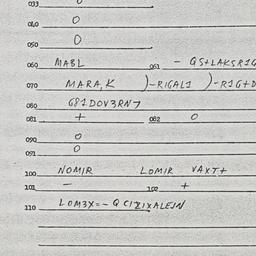 033
040 O
050 O
060 MABL 061 - QS+LAKSR1G
070 MARA,K )-RIGAL1 )-R1G+D
080 G81DOV3RN7
081 + 082 O
090 O
091 O
100 NOMIR LOMIR VAXT+
101 - 102 +
110 LOM3X=-QCI